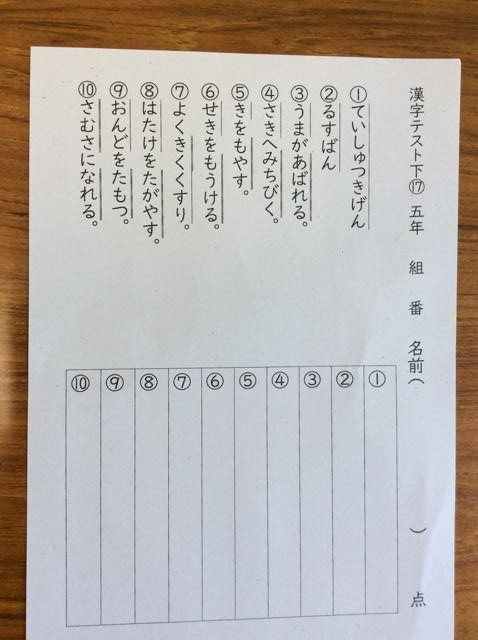 漢字テスト下⑰ 五年 組 番 名前( ) 点
①ていしゅつきげん
②るすばん
③うまがあばれる。
④さきへみちびく。
⑤きをもやす。
⑥せきをもうける。
⑦よくきくくすり。
⑧はたけをたがやす。
⑨おんどをたもつ。
⑩さむさになれる。
①
②
③
④
⑤
⑥
⑦
⑧
⑨
⑩